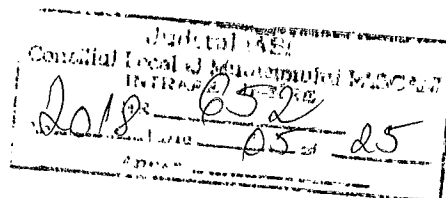 Județul IAȘI
Consiliul Local al Municipiului PAȘCANI
INTRARE
NR. 652
2018 Luna 05 zi 25